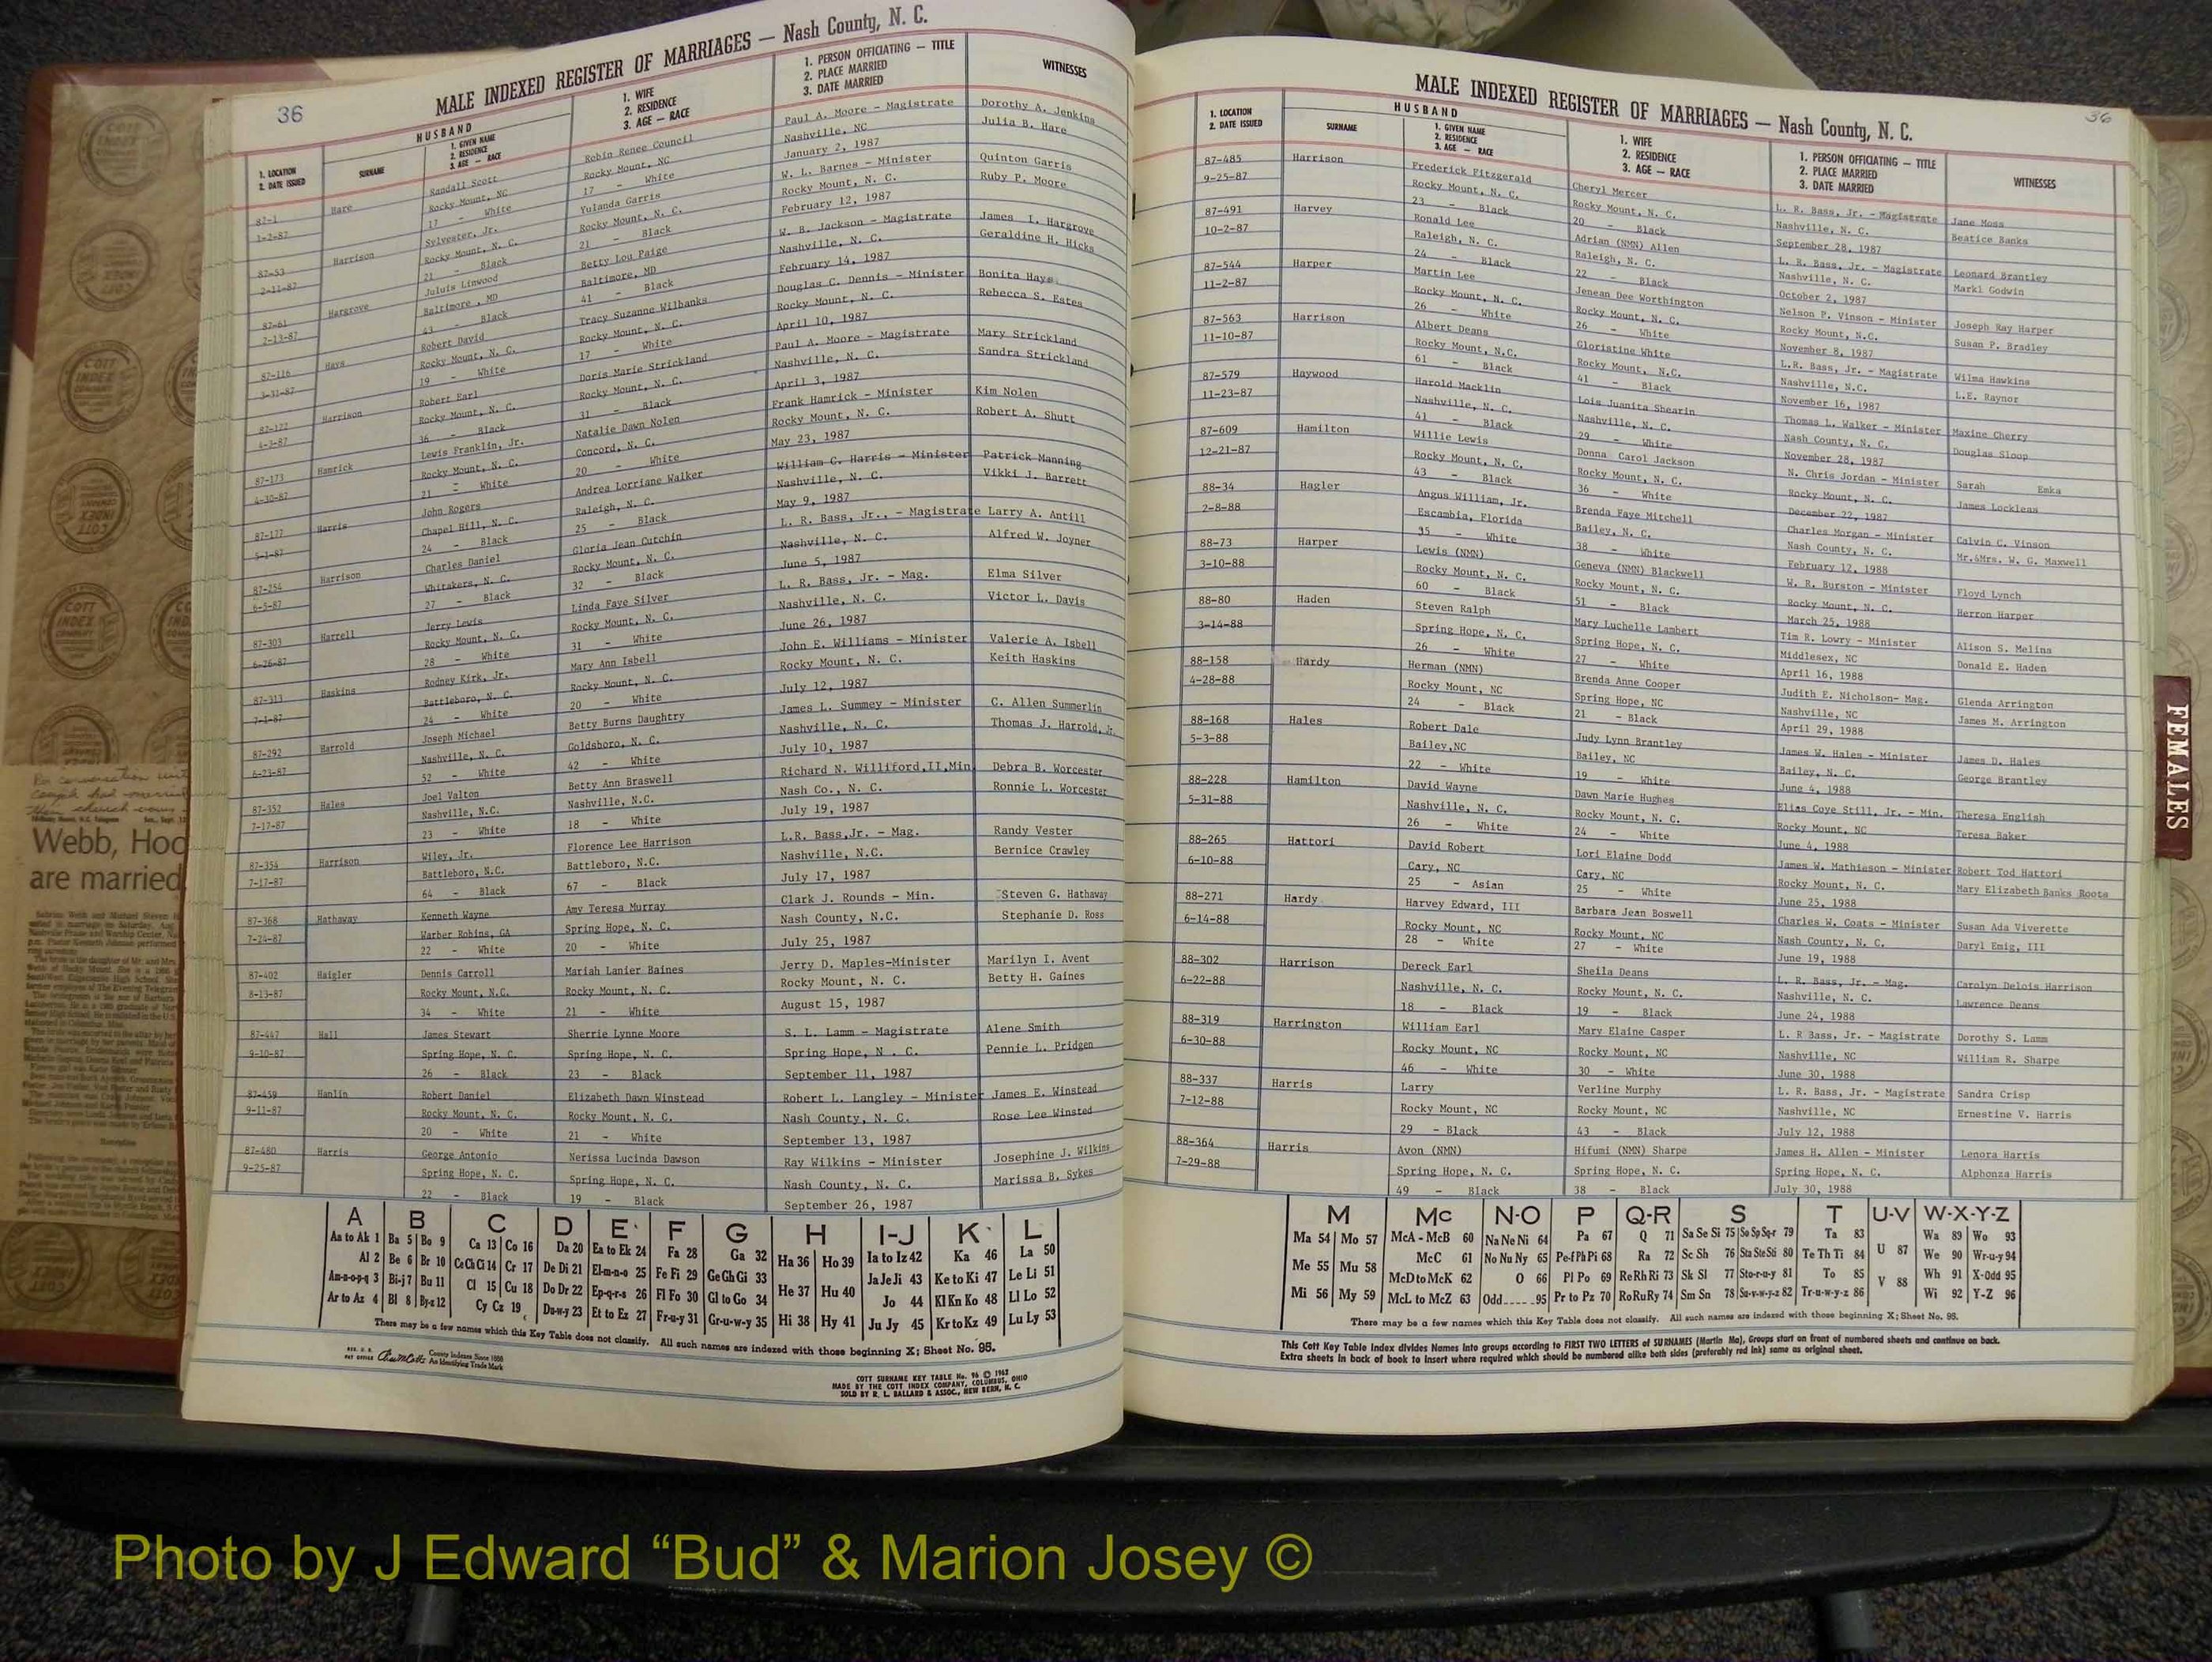 36
MALE INDEXED REGISTER OF MARRIAGES — Nash County, N. C.
1. LOCATION
2. DATE ISSUED
SURNAME
HUSBAND
1. GIVEN NAME
2. RESIDENCE
3. AGE — RACE
1. WIFE
2. RESIDENCE
3. AGE — RACE
1. PERSON OFFICIATING — TITLE
2. PLACE MARRIED
3. DATE MARRIED
WITNESSES
87-1 Hare Randall Scott Robin Renee Council Paul A. Moore - Magistrate Dorothy A. Jenkins
1-2-87 Rocky Mount, NC Rocky Mount, NC Nashville, NC Julia B. Hare
17 - White 17 - White January 2, 1987
87-53 Harrison Sylvester, Jr. Yulanda Garris W. L. Barnes - Minister Quinton Garris
2-11-87 Rocky Mount, N. C. Rocky Mount, N. C. Rocky Mount, N. C. Ruby P. Moore
21 - Black 21 - Black February 12, 1987
87-61 Hargrove Juluis Linwood Betty Lou Paige W. B. Jackson - Magistrate James I. Hargrove
2-13-87 Baltimore, MD Baltimore, MD Nashville, N. C. Geraldine H. Hicks
43 - Black 41 - Black February 14, 1987
87-116 Hays Robert David Tracy Suzanne Wilbanks Douglas C. Dennis - Minister Bonita Hays
3-31-87 Rocky Mount, N. C. Rocky Mount, N. C. Rocky Mount, N. C. Rebecca S. Estes
19 - White 17 - White April 10, 1987
87-122 Harrison Robert Earl Doris Marie Strickland Paul A. Moore - Magistrate Mary Strickland
4-3-87 Rocky Mount, N. C. Rocky Mount, N. C. Nashville, N. C. Sandra Strickland
36 - Black 31 - Black April 3, 1987
87-173 Hamrick Lewis Franklin, Jr. Natalie Dawn Nolen Frank Hamrick - Minister Kim Nolen
4-30-87 Rocky Mount, N. C. Concord, N. C. Rocky Mount, N. C. Robert A. Shutt
21 - White 20 - White May 23, 1987
87-177 Harris John Rogers Andrea Lorriane Walker William C. Harris - Minister Patrick Manning
5-1-87 Chapel Hill, N. C. Raleigh, N. C. Nashville, N. C. Vikki J. Barrett
24 - Black 25 - Black May 9, 1987
87-254 Harrison Charles Daniel Gloria Jean Cutchin L. R. Bass, Jr., - Magistrate Larry A. Antill
6-5-87 Whitakers, N. C. Rocky Mount, N. C. Nashville, N. C. Alfred W. Joyner
27 - Black 32 - Black June 5, 1987
87-303 Harrell Jerry Lewis Linda Faye Silver L. R. Bass, Jr. - Mag. Elma Silver
6-26-87 Rocky Mount, N. C. Rocky Mount, N. C. Nashville, N. C. Victor L. Davis
28 - White 31 - White June 26, 1987
87-313 Haskins Rodney Kirk, Jr. Mary Ann Isbell John E. Williams - Minister Valerie A. Isbell
7-1-87 Battleboro, N. C. Rocky Mount, N. C. Rocky Mount, N. C. Keith Haskins
24 - White 20 - White July 12, 1987
87-292 Harrold Joseph Michael Betty Burns Daughtry James L. Summey - Minister C. Allen Summerlin
6-23-87 Nashville, N. C. Goldsboro, N. C. Nashville, N. C. Thomas J. Harrold, Jr.
52 - White 42 - White July 10, 1987
87-352 Hales Joel Valton Betty Ann Braswell Richard N. Williford,II,Min. Debra B. Worcester
7-17-87 Nashville, N.C. Nashville, N.C. Nash Co., N. C. Ronnie L. Worcester
23 - White 18 - White July 19, 1987
87-354 Harrison Wiley, Jr. Florence Lee Harrison L.R. Bass,Jr. - Mag. Randy Vester
7-17-87 Battleboro, N.C. Battleboro, N.C. Nashville, N.C. Bernice Crawley
64 - Black 67 - Black July 17, 1987
87-368 Hathaway Kenneth Wayne Amy Teresa Murray Clark J. Rounds - Min. Steven G. Hathaway
7-24-87 Warber Robins, GA Spring Hope, N. C. Nash County, N.C. Stephanie D. Ross
22 - White 20 - White July 25, 1987
87-402 Haigler Dennis Carroll Mariah Lanier Baines Jerry D. Maples-Minister Marilyn I. Avent
8-13-87 Rocky Mount, N.C. Rocky Mount, N. C. Rocky Mount, N. C. Betty H. Gaines
34 - White 21 - White August 15, 1987
87-447 Hall James Stewart Sherrie Lynne Moore S. L. Lamm - Magistrate Alene Smith
9-10-87 Spring Hope, N. C. Spring Hope, N. C. Spring Hope, N . C. Pennie L. Pridgen
26 - Black 23 - Black September 11, 1987
87-459 Hanlin Robert Daniel Elizabeth Dawn Winstead Robert L. Langley - Minister James E. Winstead
9-11-87 Rocky Mount, N. C. Rocky Mount, N. C. Nash County, N. C. Rose Lee Winsted
20 - White 21 - White September 13, 1987
87-480 Harris George Antonio Nerissa Lucinda Dawson Ray Wilkins - Minister Josephine J. Wilkins
9-25-87 Spring Hope, N. C. Spring Hope, N. C. Nash County, N. C. Marissa B. Sykes
22 - Black 19 - Black September 26, 1987
A B C D E F G H I-J K L
Aa to Ak 1 Ba 5 Bo 9 Ca 13 Co 16 Da 20 Ea to Ek 24 Fa 28 Ga 32 Ha 36 Ho 39 Ia to Iz 42 Ka 46 La 50
Al 2 Be 6 Br 10 Ce Ch Ci 14 Cr 17 De Di 21 El-m-n-o 25 Fe Fi 29 Ge Gh Gi 33 He 37 Hu 40 Ja Je Ji 43 Ke to Ki 47 Le Li 51
Am-n-o-p-q 3 Bi-j 7 Bu 11 Cl 15 Cu 18 Do Dr 22 Ep-q-r-s 26 Fl Fo 30 Gl to Go 34 Hi 38 Hy 41 Jo 44 Kl Kn Ko 48 Ll Lo 52
Ar to Az 4 Bl 8 By-z 12 Cy Cz 19 Du-w-y 23 Et to Ez 27 Fr-u-y 31 Gr-u-w-y 35 Ju Jy 45 Kr to Kz 49 Lu Ly 53
There may be a few names which this Key Table does not classify. All such names are indexed with those beginning X; Sheet No. 95.
REG. U. S. PAT OFFICE County Indexes Since 1888 An Identifying Trade Mark
COTT SURNAME KEY TABLE No. 96 © 1962
MADE BY THE COTT INDEX COMPANY, COLUMBUS, OHIO
SOLD BY R. L. BALLARD & ASSOC., NEW BERN, N. C.
36
MALE INDEXED REGISTER OF MARRIAGES — Nash County, N. C.
1. LOCATION
2. DATE ISSUED
SURNAME
HUSBAND
1. GIVEN NAME
2. RESIDENCE
3. AGE — RACE
1. WIFE
2. RESIDENCE
3. AGE — RACE
1. PERSON OFFICIATING — TITLE
2. PLACE MARRIED
3. DATE MARRIED
WITNESSES
87-485 Harrison Frederick Fitzgerald Cheryl Mercer L. R. Bass, Jr. - Magistrate Jane Moss
9-25-87 Rocky Mount, N. C. Rocky Mount, N. C. Nashville, N. C. Beatice Banks
23 - Black 20 - Black September 28, 1987
87-491 Harvey Ronald Lee Adrian (NMN) Allen L. R. Bass, Jr. - Magistrate Leonard Brantley
10-2-87 Raleigh, N. C. Raleigh, N. C. Nashville, N. C. Marki Godwin
24 - Black 22 - Black October 2, 1987
87-544 Harper Martin Lee Jenean Dee Worthington Nelson P. Vinson - Minister Joseph Ray Harper
11-2-87 Rocky Mount, N. C. Rocky Mount, N. C. Rocky Mount, N.C. Susan P. Bradley
26 - White 26 - White November 8, 1987
87-563 Harrison Albert Deans Gloristine White L.R. Bass, Jr. - Magistrate Wilma Hawkins
11-10-87 Rocky Mount, N.C. Rocky Mount, N.C. Nashville, N.C. L.E. Raynor
61 - Black 41 - Black November 16, 1987
87-579 Haywood Harold Macklin Lois Juanita Shearin Thomas L. Walker - Minister Maxine Cherry
11-23-87 Nashville, N. C. Nashville, N. C. Nash County, N. C. Douglas Sloop
41 - Black 29 - White November 28, 1987
87-609 Hamilton Willie Lewis Donna Carol Jackson N. Chris Jordan - Minister Sarah Emka
12-21-87 Rocky Mount, N. C. Rocky Mount, N. C. Rocky Mount, N. C. James Lockleas
43 - Black 36 - White December 22, 1987
88-34 Hagler Angus William, Jr. Brenda Faye Mitchell Charles Morgan - Minister Calvin C. Vinson
2-8-88 Escambia, Florida Bailey, N. C. Nash County, N. C. Mr.&Mrs. W. G. Maxwell
35 - White 38 - White February 12, 1988
88-73 Harper Lewis (NMN) Geneva (NMN) Blackwell W. R. Burston - Minister Floyd Lynch
3-10-88 Rocky Mount, N. C. Rocky Mount, N. C. Rocky Mount, N. C. Herron Harper
60 - Black 51 - Black March 25, 1988
88-80 Haden Steven Ralph Mary Luchelle Lambert Tim R. Lowry - Minister Alison S. Melina
3-14-88 Spring Hope, N. C. Spring Hope, N. C. Middlesex, NC Donald E. Haden
26 - White 27 - White April 16, 1988
88-158 Hardy Herman (NMN) Brenda Anne Cooper Judith E. Nicholson- Mag. Glenda Arrington
4-28-88 Rocky Mount, NC Spring Hope, NC Nashville, NC James M. Arrington
24 - Black 21 - Black April 29, 1988
88-168 Hales Robert Dale Judy Lynn Brantley James W. Hales - Minister James D. Hales
5-3-88 Bailey,NC Bailey, NC Bailey, N. C. George Brantley
22 - White 19 - White June 4, 1988
88-228 Hamilton David Wayne Dawn Marie Hughes Elias Coye Still, Jr. - Min. Theresa English
5-31-88 Nashville, N. C. Rocky Mount, N. C. Rocky Mount, NC Teresa Baker
26 - White 24 - White June 4, 1988
88-265 Hattori David Robert Lori Elaine Dodd James W. Mathieson - Minister Robert Tod Hattori
6-10-88 Cary, NC Cary, NC Rocky Mount, N. C. Mary Elizabeth Banks Roots
25 - Asian 25 - White June 25, 1988
88-271 Hardy Harvey Edward, III Barbara Jean Boswell Charles W. Coats - Minister Susan Ada Viverette
6-14-88 Rocky Mount, NC Rocky Mount, NC Nash County, N. C. Daryl Emig, III
28 - White 27 - White June 19, 1988
88-302 Harrison Dereck Earl Sheila Deans L. R. Bass, Jr. - Mag. Carolyn Delois Harrison
6-22-88 Nashville, N. C. Rocky Mount, N. C. Nashville, N. C. Lawrence Deans
18 - Black 19 - Black June 24, 1988
88-319 Harrington William Earl Mary Elaine Casper L. R Bass, Jr. - Magistrate Dorothy S. Lamm
6-30-88 Rocky Mount, NC Rocky Mount, NC Nashville, NC William R. Sharpe
46 - White 30 - White June 30, 1988
88-337 Harris Larry Verline Murphy L. R. Bass, Jr. - Magistrate Sandra Crisp
7-12-88 Rocky Mount, NC Rocky Mount, NC Nashville, NC Ernestine V. Harris
29 - Black 43 - Black July 12, 1988
88-364 Harris Avon (NMN) Hifumi (NMN) Sharpe James H. Allen - Minister Lenora Harris
7-29-88 Spring Hope, N. C. Spring Hope, N. C. Spring Hope, N. C. Alphonza Harris
49 - Black 38 - Black July 30, 1988
M Mc N-O P Q-R S T U-V W-X-Y-Z
Ma 54 Mo 57 McA - McB 60 Na Ne Ni 64 Pa 67 Q 71 Sa Se Si 75 So Sp Sq-r 79 Ta 83 U 87 Wa 89 Wo 93
Me 55 Mu 58 McC 61 No Nu Ny 65 Pe-f Ph Pi 68 Ra 72 Sc Sh 76 Sta Ste Sti 80 Te Th Ti 84 V 88 We 90 Wr-u-y 94
Mi 56 My 59 McD to McK 62 O 66 Pl Po 69 Re Rh Ri 73 Sk Sl 77 Sto-r-u-y 81 To 85 Wh 91 X-Odd 95
McL to McZ 63 Odd 95 Pr to Pz 70 Ro Ru Ry 74 Sm Sn 78 Su-v-w-y-z 82 Tr-u-w-y-z 86 Wi 92 Y-Z 96
There may be a few names which this Key Table does not classify. All such names are indexed with those beginning X; Sheet No. 95.
This Cott Key Table Index divides Names into groups according to FIRST TWO LETTERS of SURNAMES (Martin Ma), Groups start on front of numbered sheets and continue on back.
Extra sheets in back of book to insert where required which should be numbered alike both sides (preferably red ink) same as original sheet.
FEMALES
Webb, Hoo
are married
Photo by J Edward “Bud” & Marion Josey ©